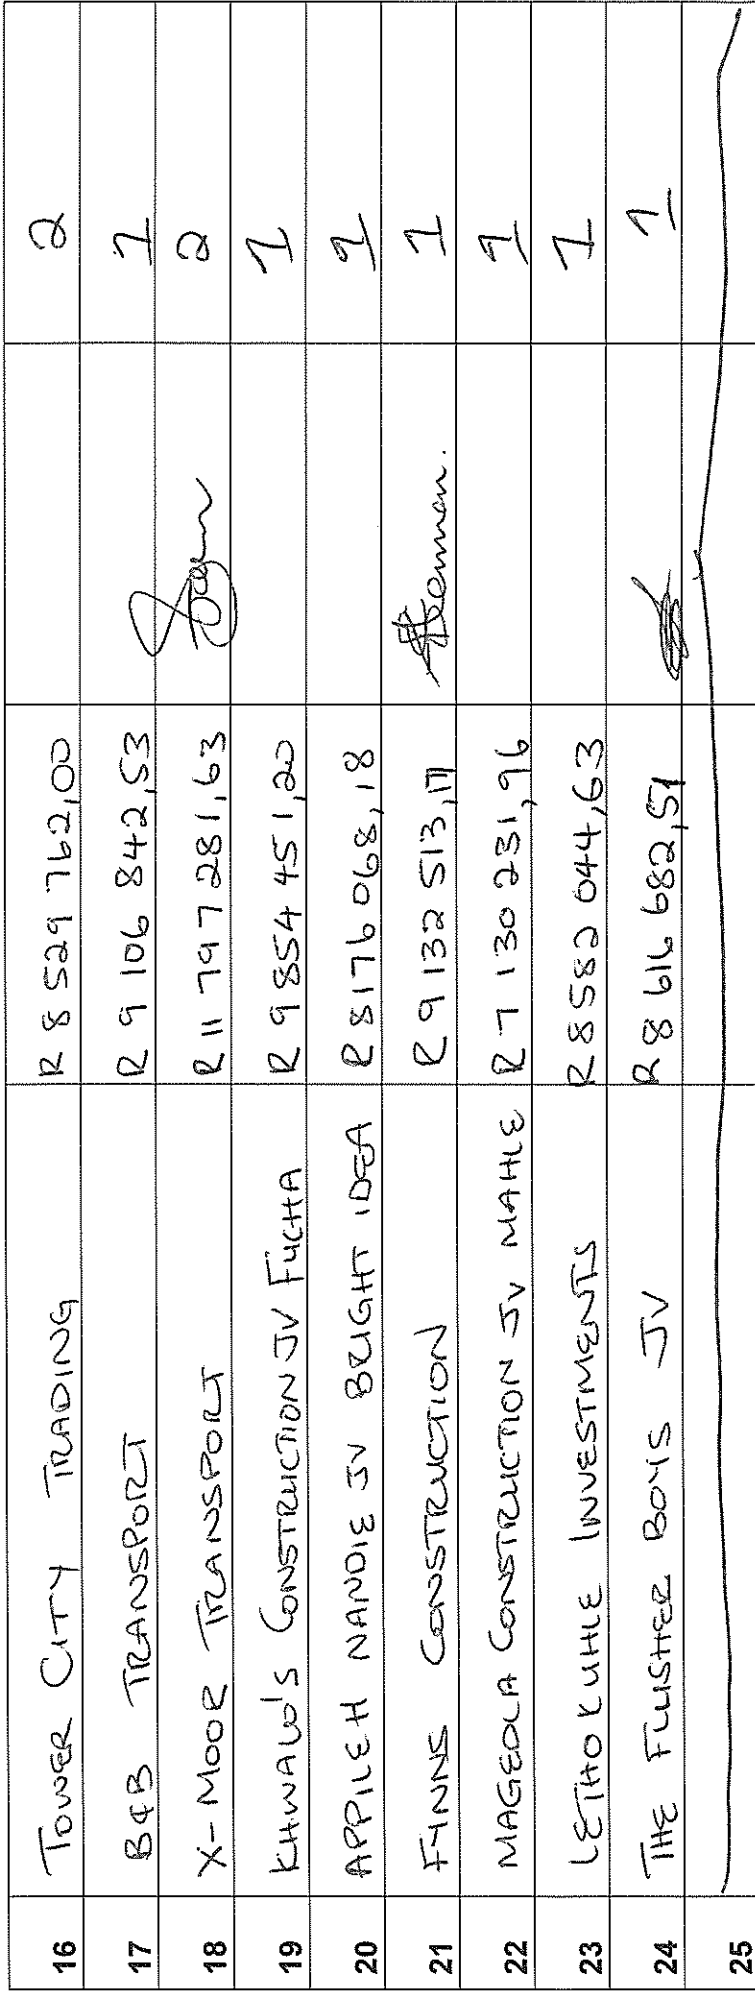 16 TOWER CITY TRADING R 8 529 762,00 2
17 B&B TRANSPORT R 9 106 842,53 1
18 X-MOOR TRANSPORT R 11 797 281,63 2
19 KHWALO'S CONSTRUCTION JV FUCHA R 9 854 451,20 1
20 APPILEH NANDIE JV BRIGHT IDEA R 8176 068,18 1
21 FYNNS CONSTRUCTION R 9 132 513,17 1
22 MAGEOLA CONSTRUCTION JV MAHLE R 7 130 231,96 1
23 LETHOKUHLE INVESTMENTS R 8 582 044,63 1
24 THE FLUSHER BOYS JV R 8 616 682,51 1
25